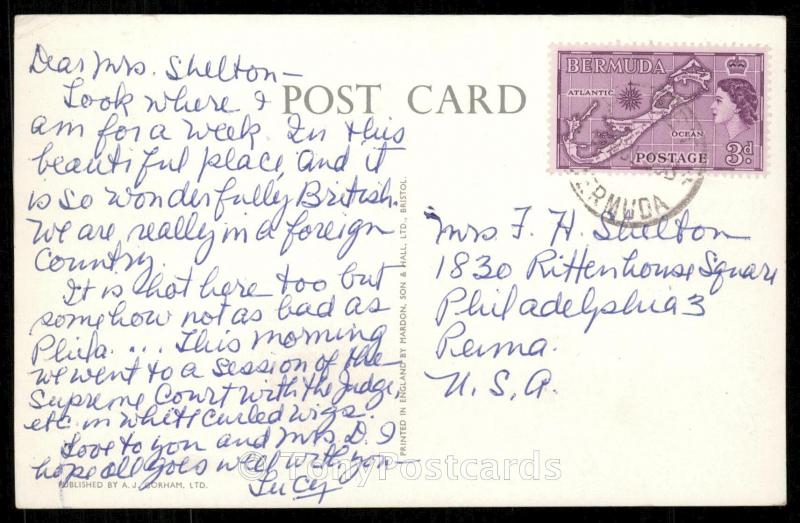 Dear Mrs. Shelton–
Look where I
am for a week. In this
beautiful place, and it
is so wonderfully British.
We are really in a foreign
country.
It is hot here too but
somehow not as bad as
Phila. ... This morning
we went to a session of the
Supreme Court with the Judge,
etc. in white curled wigs.
Love to you and Mrs. D. I
hope all goes well with you–
Lucy
PUBLISHED BY A. J. GORHAM, LTD.
POST CARD
PRINTED IN ENGLAND BY MARDON, SON & HALL, LTD., BRISTOL.
BERMUDA
ATLANTIC
OCEAN
POSTAGE 3d.
BERMUDA
Mrs F. H. Shelton
1830 Rittenhouse Square
Philadelphia 3
Penna.
U. S. A.
©TonyPostcards